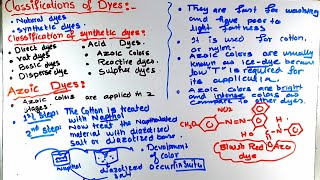 Classifications of Dyes:-
• Natural dyes
• Synthetic dyes.
Classification of synthetic dyes:-
• Direct dyes
• vat dyes
• Basic Dyes
• Disperse dye
• Acid Dyes.
• Azoic Colors
• Reactive dyes.
• Sulphur dyes
Azoic Dyes:-
Azoic colors are applied in 2
stages:-
1st Step: The Cotton is treated
with Napthol
2nd Step: Now treat the Naphtolated
material with diazotised
salt or diazotised base.
Napthol
diazotized
• Devolopment
of color
occur insitu
• They are fast for washing
and have poor to
light fastness
• It is used for cotton,
or nylon.
• Azoic colors are usually
known as ice-dye because
low T° is required for
its application
• Azoic colors are bright
and intense colors as
compare to other dyes.
NO2
N=N
HO
Bluish Red Azo
dye